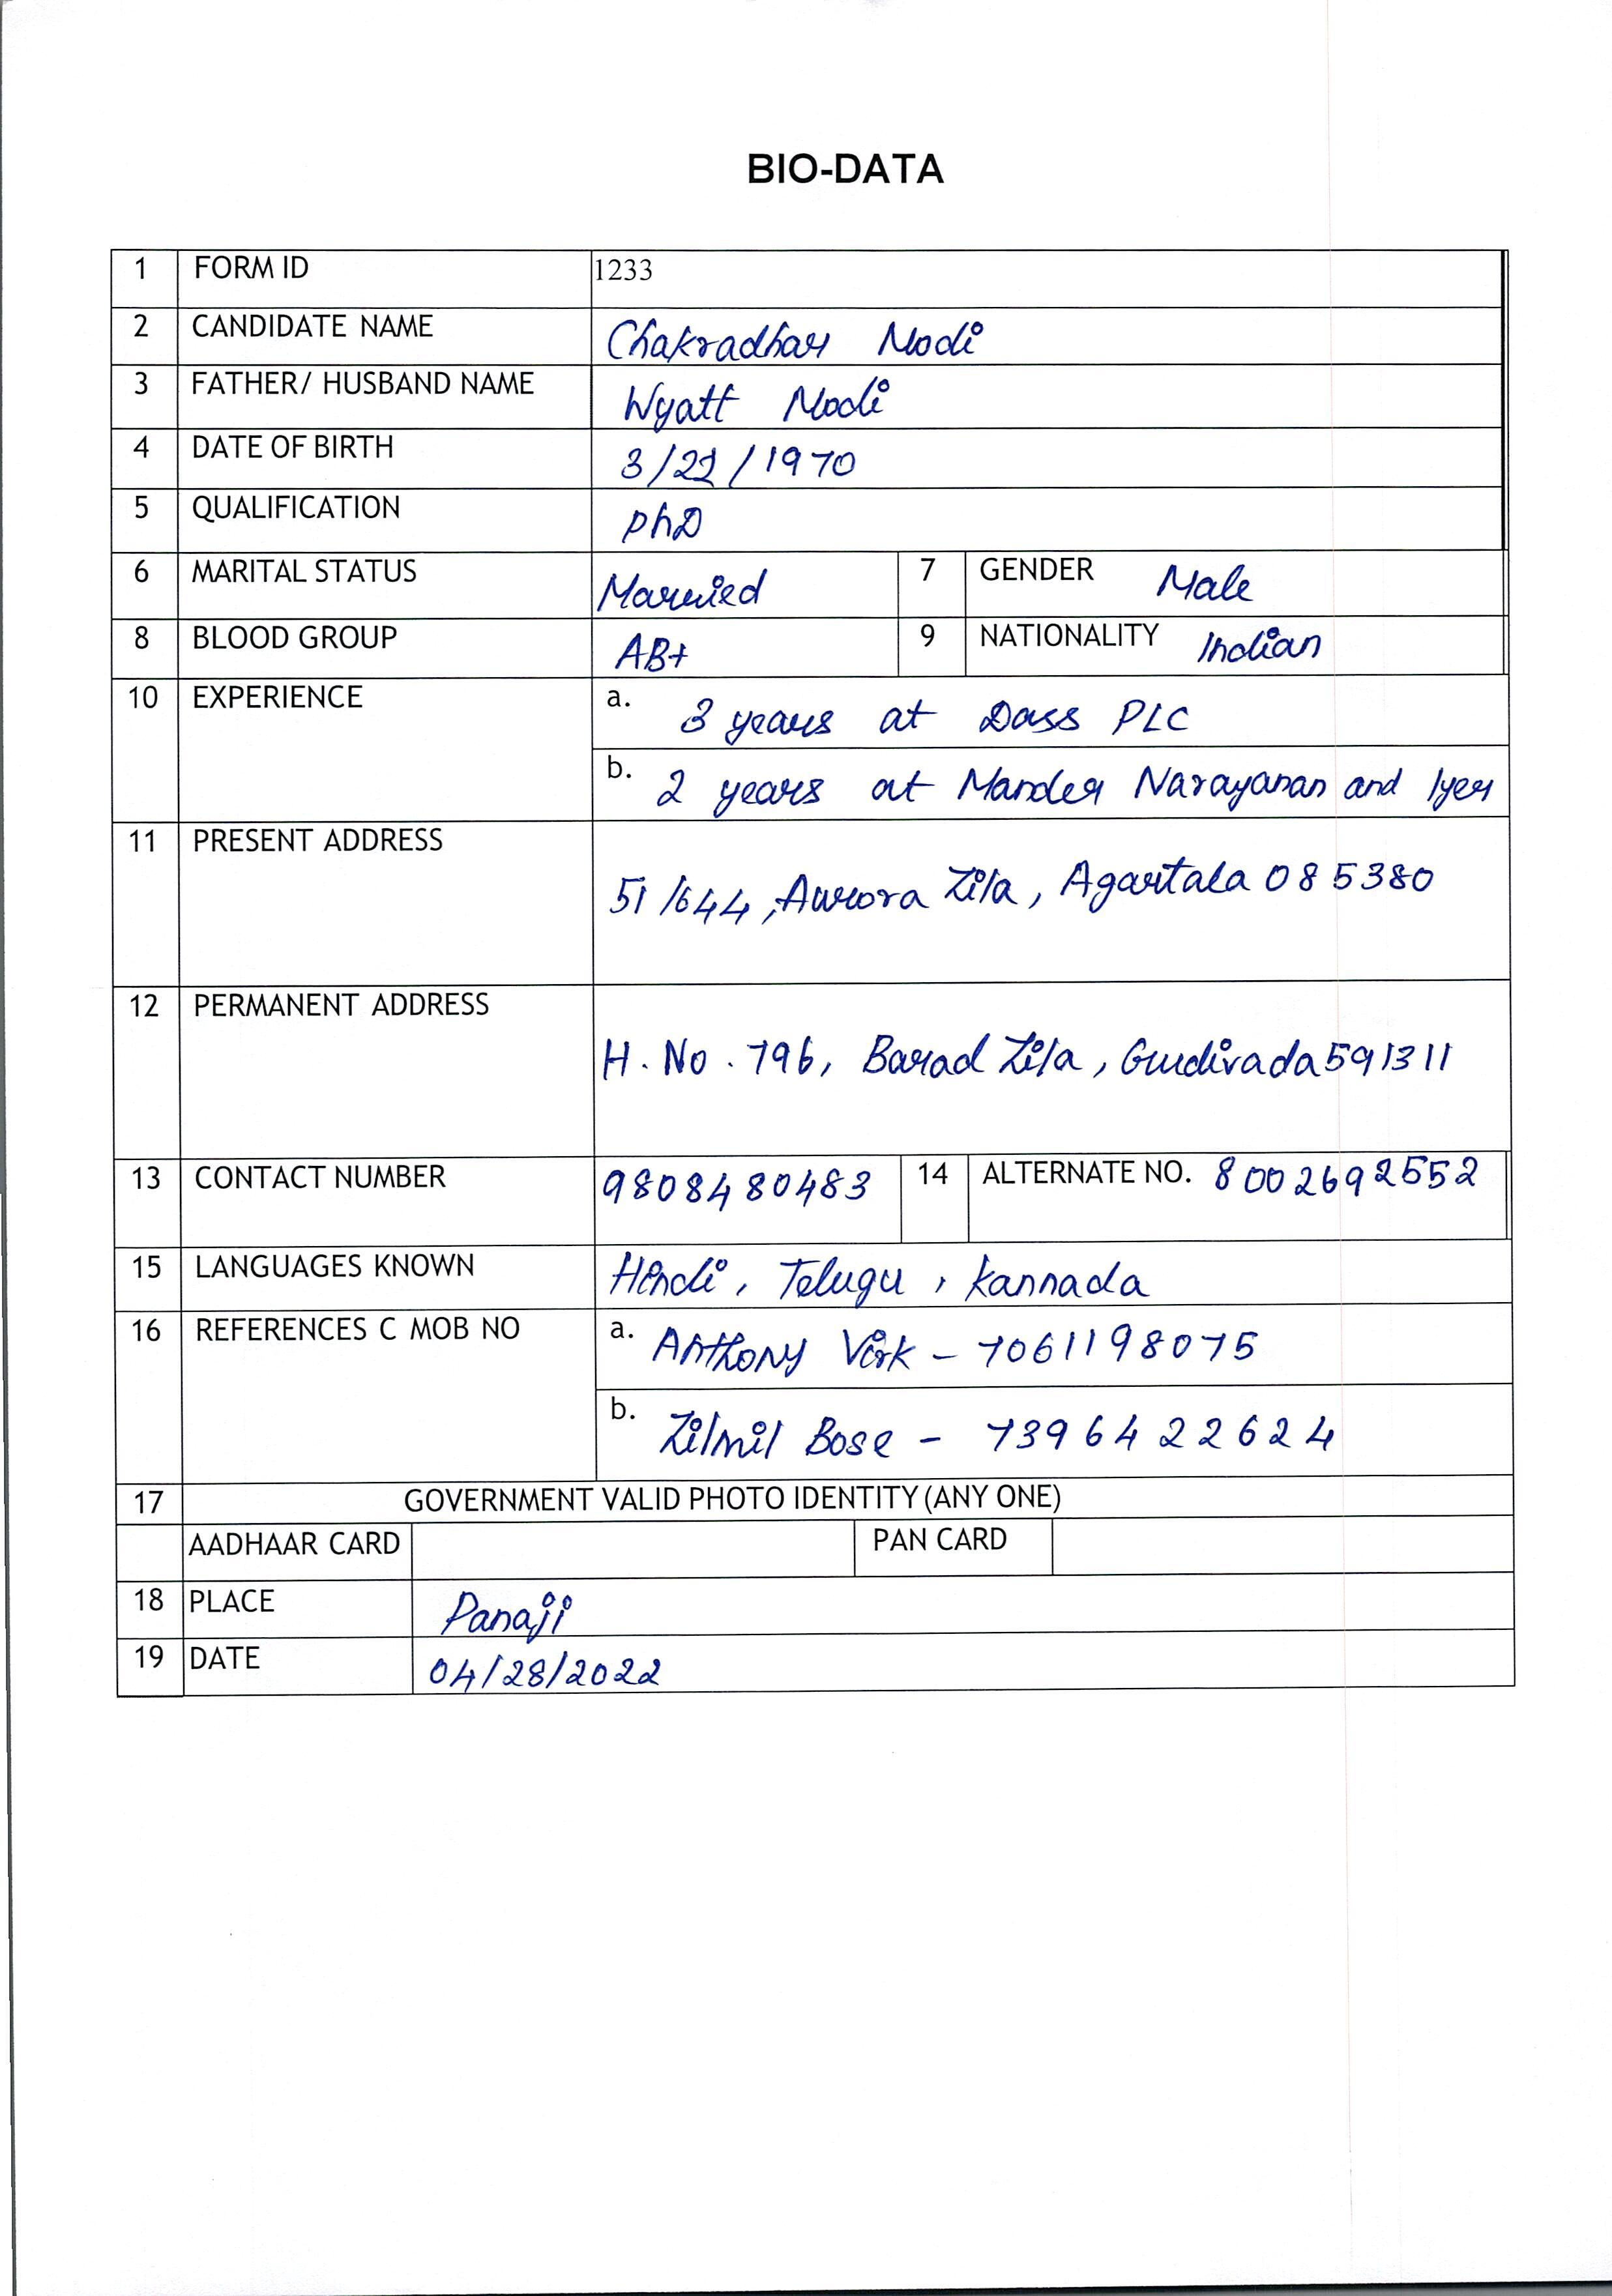 BIO-DATA
1 FORM ID 1233
2 CANDIDATE NAME Chakradhar Modi
3 FATHER/ HUSBAND NAME Wyatt Modi
4 DATE OF BIRTH 3/22/1970
5 QUALIFICATION PhD
6 MARITAL STATUS Married 7 GENDER Male
8 BLOOD GROUP AB+ 9 NATIONALITY Indian
10 EXPERIENCE a. 3 years at Dass PLC
b. 2 years at Mander Narayanan and Iyer
11 PRESENT ADDRESS
51/644, Aurora Zila, Agartala 085380
12 PERMANENT ADDRESS
H. No. 796, Barad Zila, Gudivada 591311
13 CONTACT NUMBER 9808480483 14 ALTERNATE NO. 8002692552
15 LANGUAGES KNOWN Hindi, Telugu, Kannada
16 REFERENCES C MOB NO a. Anthony Virk - 7061198075
b. Zilmil Bose - 7396422624
17 GOVERNMENT VALID PHOTO IDENTITY (ANY ONE)
AADHAAR CARD PAN CARD
18 PLACE Panaji
19 DATE 04/28/2022